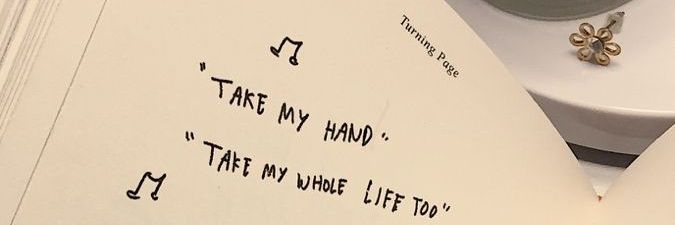 Turning Page
"TAKE MY HAND"
"TAKE MY WHOLE LIFE TOO"